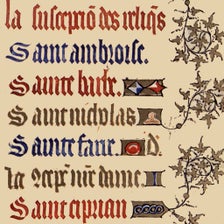 la suscepciō des reliqs
Saint ambroise.
Sainte barbe.
Saint nicholas
Sainte fare d.
la 2cep nre dame
Saint ciprian